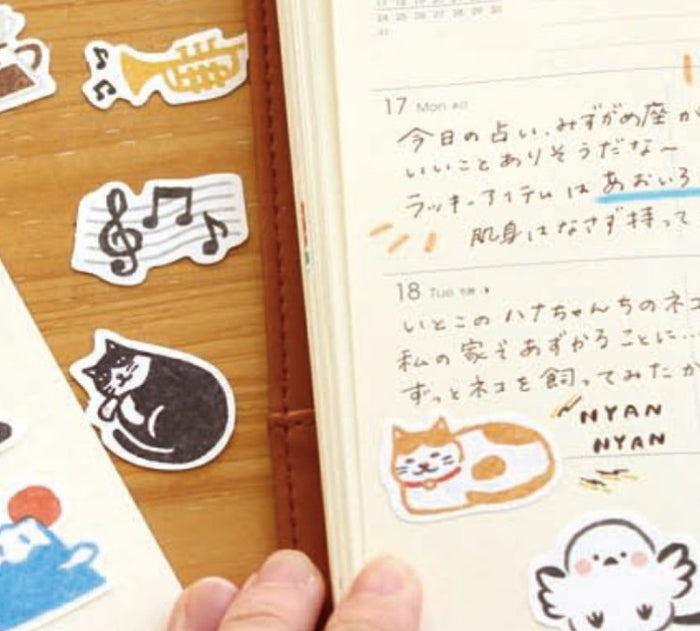 24 25 26 27 28 29 30
31
17 Mon
今日の占い、みずがめ座が
いいことありそうだな〜
ラッキーアイテムは あおいろ
肌身はなさず持って
18 Tue
いとこのハナちゃんちのネコ
私の家であずかることに...
ずっとネコを飼ってみたか
NYAN
NYAN